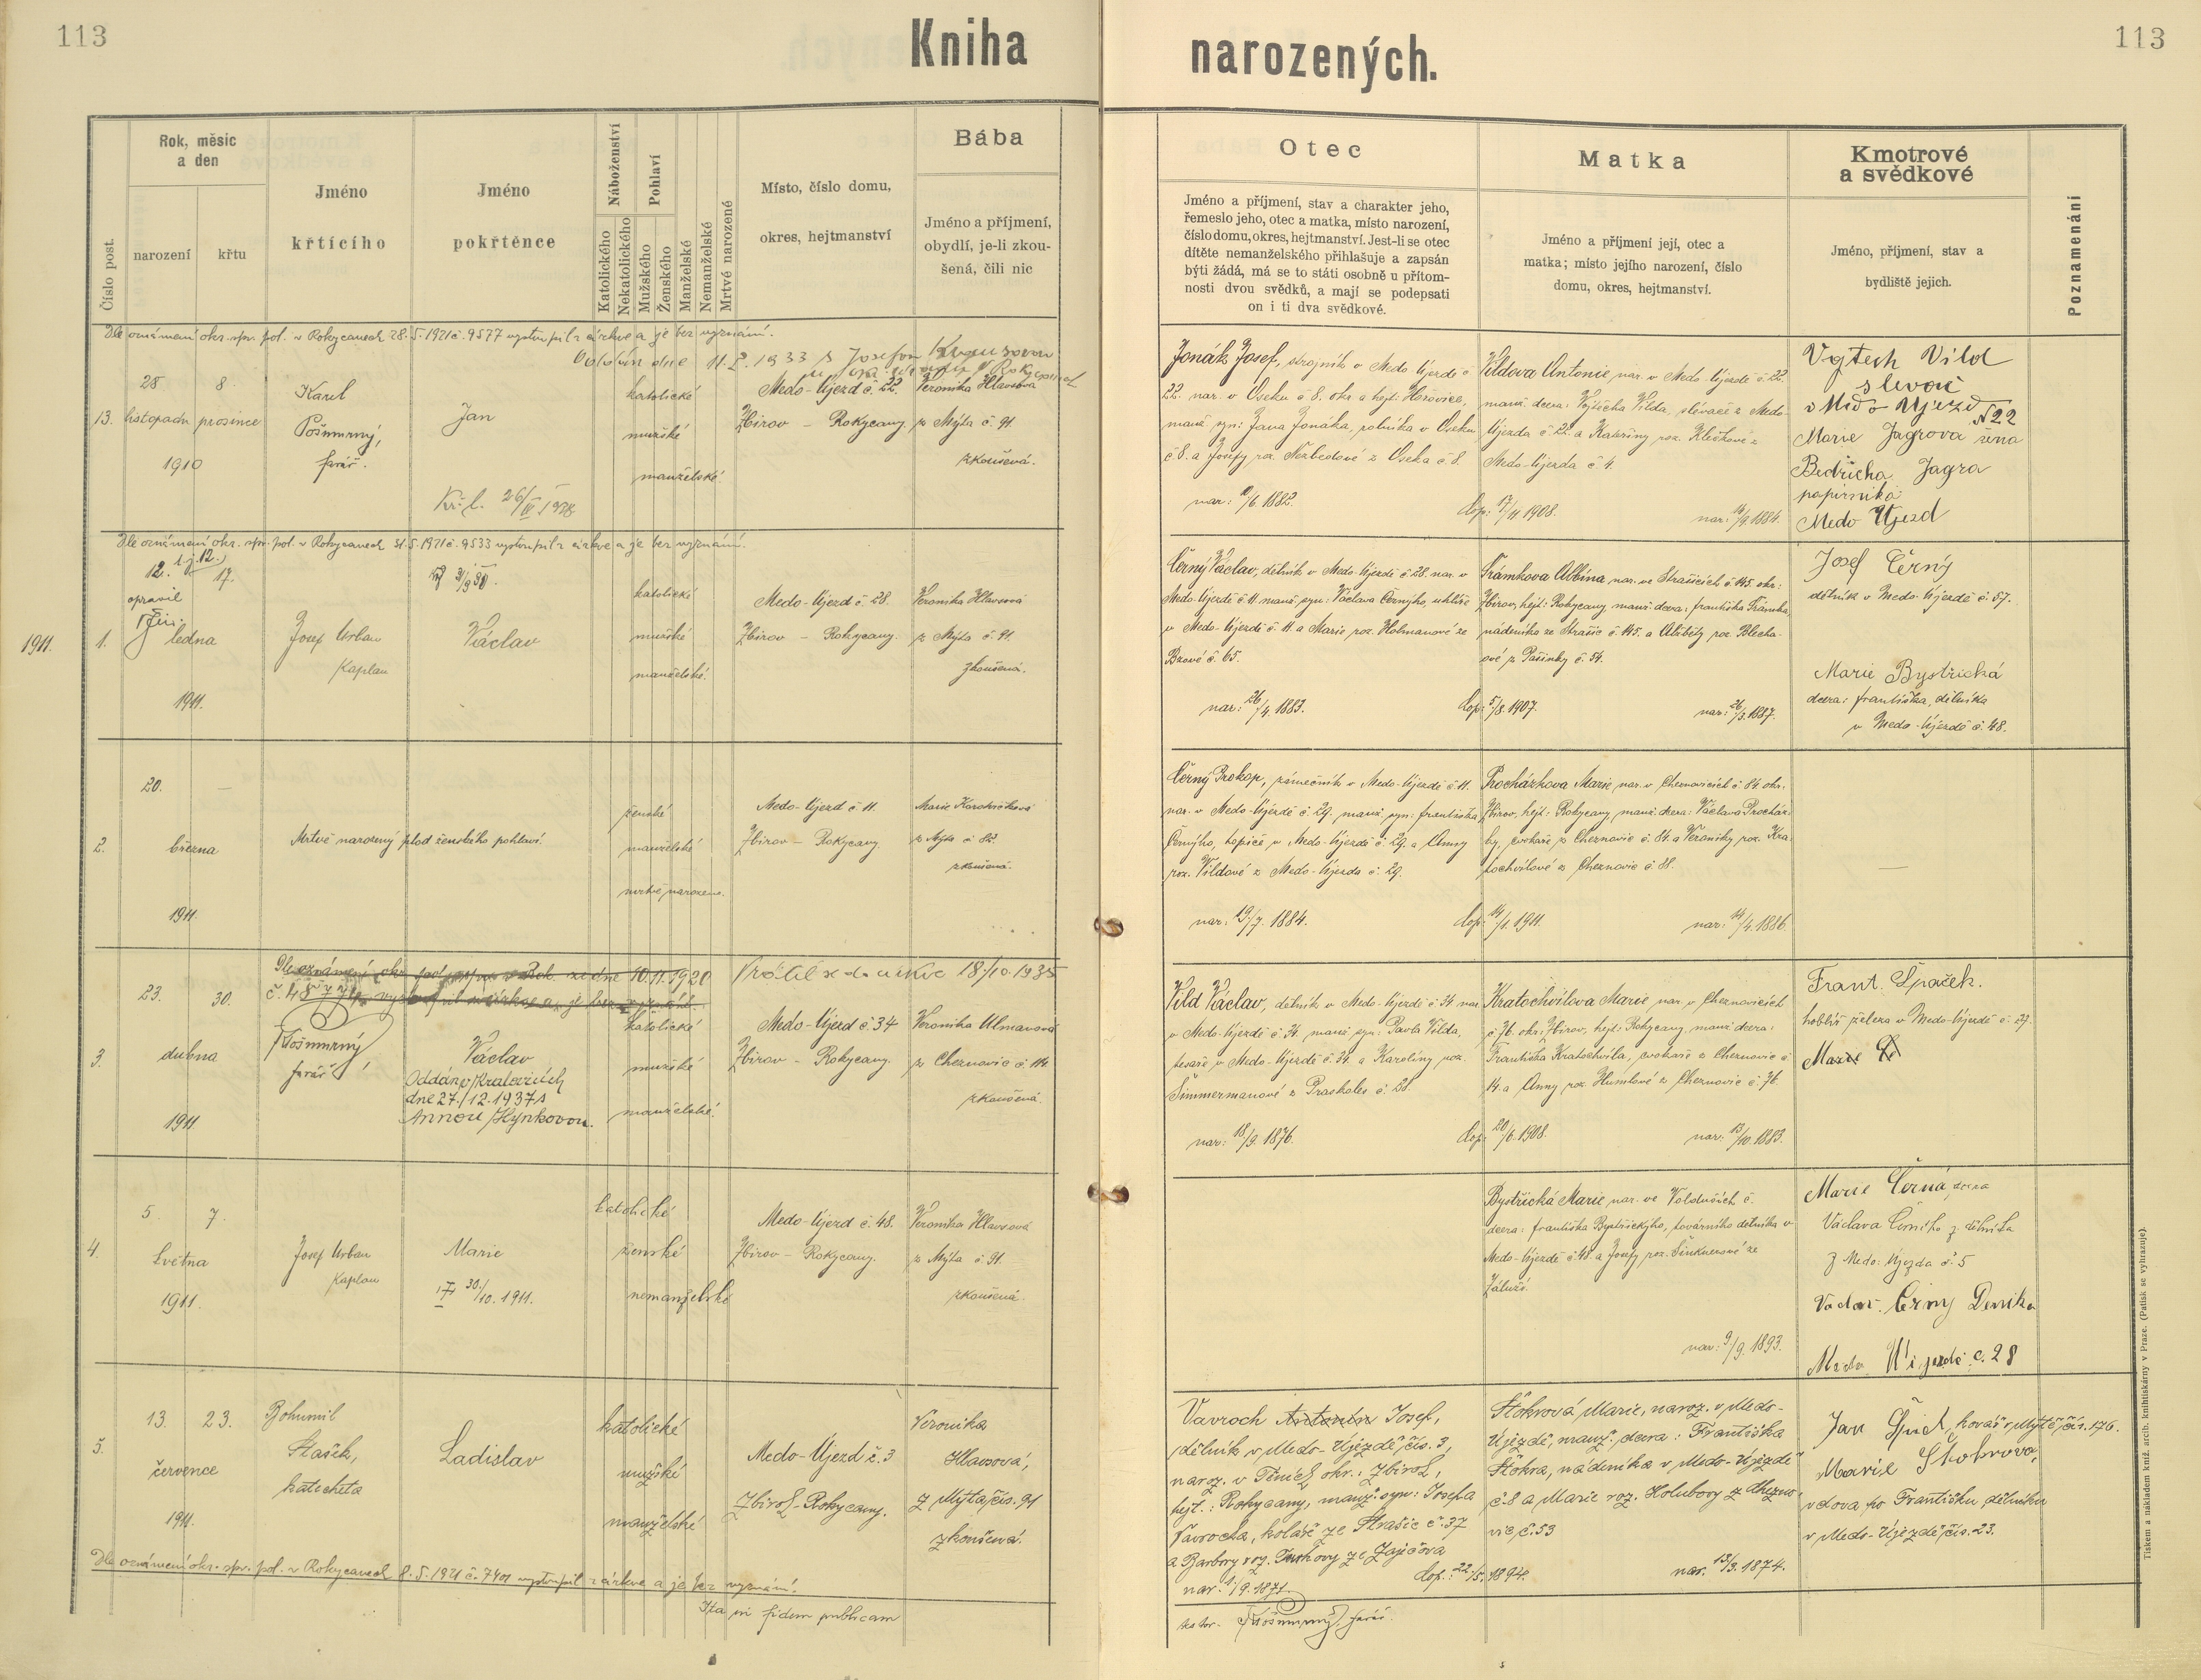 113
Kniha narozených.
113
Číslo post.
Rok, měsíc
a den
narození
křtu
Jméno
křtícího
Jméno
pokřtěnce
Náboženství
Katolického
Nekatolického
Pohlaví
Mužského
Ženského
Manželské
Nemanželské
Mrtvě narozené
Místo, číslo domu,
okres, hejtmanství
Bába
Jméno a příjmení,
obydlí, je-li zkou-
šená, čili nic
Otec
Jméno a příjmení, stav a charakter jeho,
řemeslo jeho, otec a matka, místo narození,
číslo domu, okres, hejtmanství. Jest-li se otec
dítěte nemanželského přihlašuje a zapsán
býti žádá, má se to státi osobně u přítom-
nosti dvou svědků, a mají se podepsati
on i ti dva svědkové.
Matka
Jméno a příjmení její, otec a
matka; místo jejího narození, číslo
domu, okres, hejtmanství.
Kmotrové
a svědkové
Jméno, příjmení, stav a
bydliště jejich.
Poznamenání
Dle oznámení okr. spr. pol. v Rokycanech 28. 5. 1921 č. 9577 vystoupil z církve a je bez vyznání.
dne 11. 2. 1933 s Josefou
13.
28.
listopadu
1910
8.
prosince
Karel
Pošmurný,
farář.
Jan
katolické
mužské
manželské.
Medo-Újezd č. 22.
Zbirov – Rokycany.
Veronika Hlavsová
z Mýta č. 91.
zkoušená.
Jonák Josef, strojník v Medo-Újezdě č.
22. nar. v Oseku č. 8. okr. a hejt: Hořovice,
manž. syn: Jana Jonáka, rolníka v Oseku
č. 8. a Josefy roz. Nezbedové z Oseka č. 8.
nar: /6. 1882.
Vildova Antonie nar. v Medo-Újezdě č. 22.
manž. dcera: Vojtěcha Vilda, slévače z Medo-
Újezda č. 22. a Kateřiny roz. Kličkové z
Medo-Újezda č. 4.
Cop: 17/11 1908.
nar: /9. 1884.
Vojtech Vild
slevač
v Medo Ujezd
N 22
Marie Jagrova žena
Bedřicha Jagra
papirnika
Medo Ujezd
Dle oznámení okr. spr. pol. v Rokycanech 31. 5. 1921 č. 9533 vystoupil z církve a je bez vyznání.
1911.
1.
12. t.j. 12.
opravil
ledna
1911.
17.
Josef Urban
Kaplan
Václav
katolické
mužské
manželské.
Medo-Újezd č. 28.
Zbirov – Rokycany.
Veronika Hlavsová
z Mýta č. 91.
zkoušená.
Černý Václav, dělník v Medo-Újezdě č. 28. nar. v
Medo-Újezdě č. 11. manž. syn: Václava Černýho, uhlíře
v Medo-Újezdě č. 11. a Marie roz. Holmanové ze
Bzové č. 65.
nar: 26/4. 1883.
Trámkova Albina nar. ve Strašicích č. 145. okr:
Zbirov, hejt: Rokycany manž. dcera: Františka Trámka,
nádeníka ze Strašic č. 145. a Alžběty roz. Blecha-
ové z Pašinky č. 54.
Cop: 5/8. 1907.
nar: 26/3. 1887.
Josef Černý
dělník v Medo-Újezdě č. 57.
Marie Bystřická
dcera: Františka, dělníka
v Medo-Újezdě č. 48.
2.
20.
března
1911.
—
Mrtvě narozený plod ženského pohlaví.
ženské
manželské
mrtvě narozeno.
Medo-Újezd č. 11.
Zbirov – Rokycany.
Marie
z Mýta č. 82.
zkoušená.
Černý Prokop, zámečník v Medo-Újezdě č. 11.
nar. v Medo-Újezdě č. 29. manž. syn: Františka
Černýho, topiče v Medo-Újezdě č. 29. a Anny
roz. Vildové z Medo-Újezda č. 29.
nar: 19/7. 1884.
Procházkova Marie nar. v Cheznovicích č. 84. okr:
Zbirov, hejt: Rokycany manž. dcera: Václava Procház-
ky, cvokaře z Cheznovic č. 84. a Veroniky roz. Kra-
tochvílové z Cheznovic č. 88.
Cop: 14/1. 1911.
nar: 14/4. 1886.
—
Vrátil se do církve 18/10. 1935
3.
23.
dubna
1911
30.
Pošmurný
farář
Václav
Oddán v Kralovicích
dne 27./12. 1937 s
Annou Hynkovou.
katolické
mužské
manželské.
Medo-Újezd č. 34
Zbirov – Rokycany.
Veronika Ulmanová
z Cheznovic č. 114.
zkoušená.
Vild Václav, dělník v Medo-Újezdě č. 34. nar.
v Medo-Újezdě č. 34. manž. syn: Pavla Vilda,
tesaře v Medo-Újezdě č. 34. a Karolíny roz.
Šimmermanové z Praskoles č. 28.
nar: 18/9. 1876.
Kratochvílova Marie nar. v Cheznovicích
č. 76. okr: Zbirov, hejt: Rokycany, manž. dcera:
Františka Kratochvíla, cvokaře z Cheznovic č.
14. a Anny roz. Humlové z Cheznovic č. 76.
Cop: 20/6. 1908.
nar: 13/10. 1883.
Frant. Špaček.
hoblíř železa v Medo-Újezdě č. 27.
Marie
4.
5.
Května
1911.
7.
Josef Urban
Kaplan
Marie
† 30./10. 1911.
katolické
ženské
nemanželské
Medo-Újezd č. 48.
Zbirov – Rokycany.
Veronika Hlavsová
z Mýta č. 91.
zkoušená.
Bystřická Marie nar. ve Volduších č.
dcera: Františka Bystřickýho, továrního dělníka v
Medo-Újezdě č. 48. a Josefy roz. Šinknerové ze
Záluží.
nar: 9/9. 1893.
Marie Černá dcera
Václava Černího z dělníka
z Medo: Újezda č. 5
Vaclav. Černy Denika
Medo Ujezdě č. 28
5.
13.
července
1911.
23.
Bohumil
Stašek,
katecheta
Ladislav
katolické
mužské
manželské
Medo-Újezd č. 3
Zbiroh-Rokycany.
Veronika
Hlavsová,
z Mýta, čís. 91
zkoušená.
Vavroch Antonín Josef,
dělník v Medo-Újezdě, čís. 3,
naroz. v Těních okr.: Zbiroh,
hejt.: Rokycany, manž. syn: Josefa
Vavrocha, koláře ze Strašic č. 37
a Barbory roz. Tuchovy ze Zaječova
nar. 1/9. 1871.
Štokrová Marie, naroz. v Medo-
Újezdě, manž. dcera: Františka
Štokra, nádeníka v Medo-Újezdě
č. 8 a Marie roz. Holubovy z Chezno-
vic, č. 53
Cop.: 22/5. 1894.
nar. 13/3. 1874.
Jan, kovář v Mýtě, čís. 176.
Marie Štokrova,
vdova po Františku dělníku
v Medo-Újezdě, čís. 23.
Dle oznámení okr. spr. pol. v Rokycanech 8. 5. 1921 č. 7401 vystoupil z církve a je bez vyznání.
Ita in fidem publicam
Pošmurný, farář.
Tiskem a nákladem kníž. arcib. knihtiskárny v Praze. (Patisk se vyhrazuje).